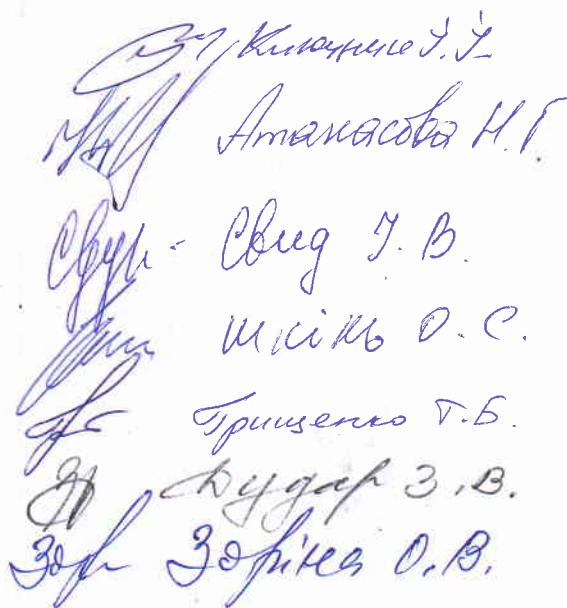 Ключник І. І.
Атанасова Н. Г.
Свид І. В.
Шкіль О. С.
Грищенко Т. Б.
Дудар З. В.
Зоріна О. В.